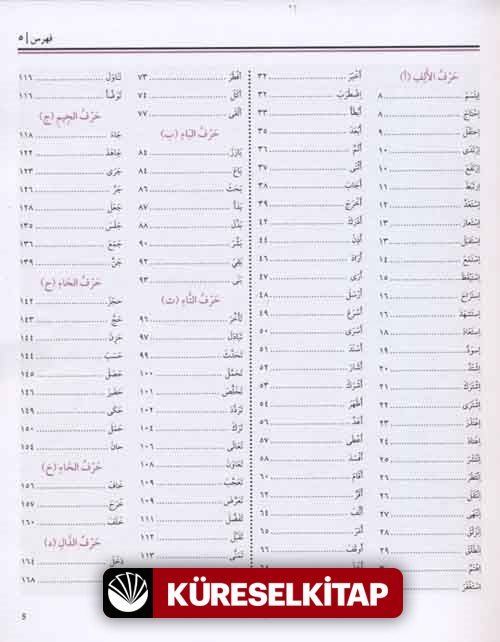 فهرس | ٥
حَرْفُ الأَلِفِ (أ)
اِبْتَسَمَ ٨
اِحْتَاجَ ٨
اِحْتَفَلَ ٩
اِرْتَدَى ١٠
اِرْتَفَعَ ١٠
اِرْتَبَطَ ١١
اِسْتَعَدَّ ١٢
اِسْتَعَارَ ١٣
اِسْتَقْبَلَ ١٣
اِسْتَمَعَ ١٤
اِسْتَيْقَظَ ١٥
اِسْتَرَاحَ ١٦
اِسْتَشْهَدَ ١٦
اِسْتَعَادَ ١٨
اِسْوَدَّ ١٩
اِشْتَدَّ ٢٠
اِشْتَرَكَ ٢١
اِشْتَرَى ٢٢
اِعْتَذَرَ ٢٣
اِعْتَادَ ٢٤
اِنْتَشَرَ ٢٥
اِنْتَظَرَ ٢٦
اِنْتَقَلَ ٢٦
اِنْتَهَى ٢٧
اِنْزَلَقَ ٢٨
اِنْطَلَقَ ٢٩
اِهْتَمَّ
اِسْتَغْفَرَ
أَخْبَرَ ٣٢
اِضْطَرَبَ ٣٢
أَبْطَأَ ٣٣
أَبْعَدَ ٣٥
أَتَمَّ ٣٦
أَثْنَى ٣٧
أَجَابَ ٣٨
أَخْرَجَ ٣٩
أَدْرَكَ ٤٢
أَذِنَ ٤٤
أَرَادَ ٤٦
أَرَى ٤٧
أَرْسَلَ ٤٨
أَسْرَعَ ٤٩
أَسْرَى ٥٠
أَسْنَدَ ٥١
أَشَارَ ٥٢
أَشْرَكَ ٥٣
أَظْهَرَ ٥٤
أَعَدَّ ٥٦
أَعْطَى ٥٧
أَفْسَدَ ٥٨
أَقَامَ ٦٠
أَقَرَّ ٦٢
أَلَّفَ ٦٤
أَمَرَ ٦٥
أَوْقَفَ ٦٦
أَمْطَرَ ٧٣
أَكَلَ ٧٤
أَلْقَى ٧٧
حَرْفُ البَاءِ (ب)
بَارَزَ ٨٤
بَاعَ ٨٤
بَحَثَ ٨٦
بَدَأَ ٨٧
بَدَّلَ ٨٨
بَشَّرَ ٩٠
بَقِيَ ٩٢
بَنَى ٩٣
حَرْفُ التَّاءِ (ت)
تَأَخَّرَ ٩٦
تَبَادَلَ ٩٧
تَحَدَّثَ ٩٩
تَحَمَّلَ ١٠٠
تَخَلَّصَ ١٠١
تَرَدَّدَ ١٠٢
تَرَكَ ١٠٤
تَعَالَى ١٠٦
تَعَاوَنَ ١٠٨
تَعَجَّبَ ١٠٩
تَعَرَّضَ ١٠٩
تَفَضَّلَ ١١١
تَقَبَّلَ ١١٢
تَمَنَّى ١١٣
تَنَاوَلَ ١١٦
تَوَضَّأَ ١١٦
حَرْفُ الجِيمِ (ج)
جَاءَ ١١٨
جَاهَدَ ١٢٢
جَرَى ١٢٣
جَرَّ ١٢٦
جَعَلَ ١٢٨
جَلَسَ ١٣٥
جَمَعَ ١٣٦
جَنَّ ١٣٩
حَرْفُ الحَاءِ (ح)
حَجَزَ ١٤٢
حَجَّ ١٤٣
حَزِنَ ١٤٤
حَسَبَ ١٤٤
حَصَلَ ١٤٥
حَضَرَ ١٤٦
حَكَى ١٤٩
حَمَلَ ١٥٠
حَانَ ١٥٤
حَرْفُ الخَاءِ (خ)
خَافَ ١٥٦
خَرَجَ ١٥٧
خَلَفَ ١٦٠
حَرْفُ الدَّالِ (د)
دَخَلَ ١٦٤
١٦٨
5
KÜRESELKİTAP